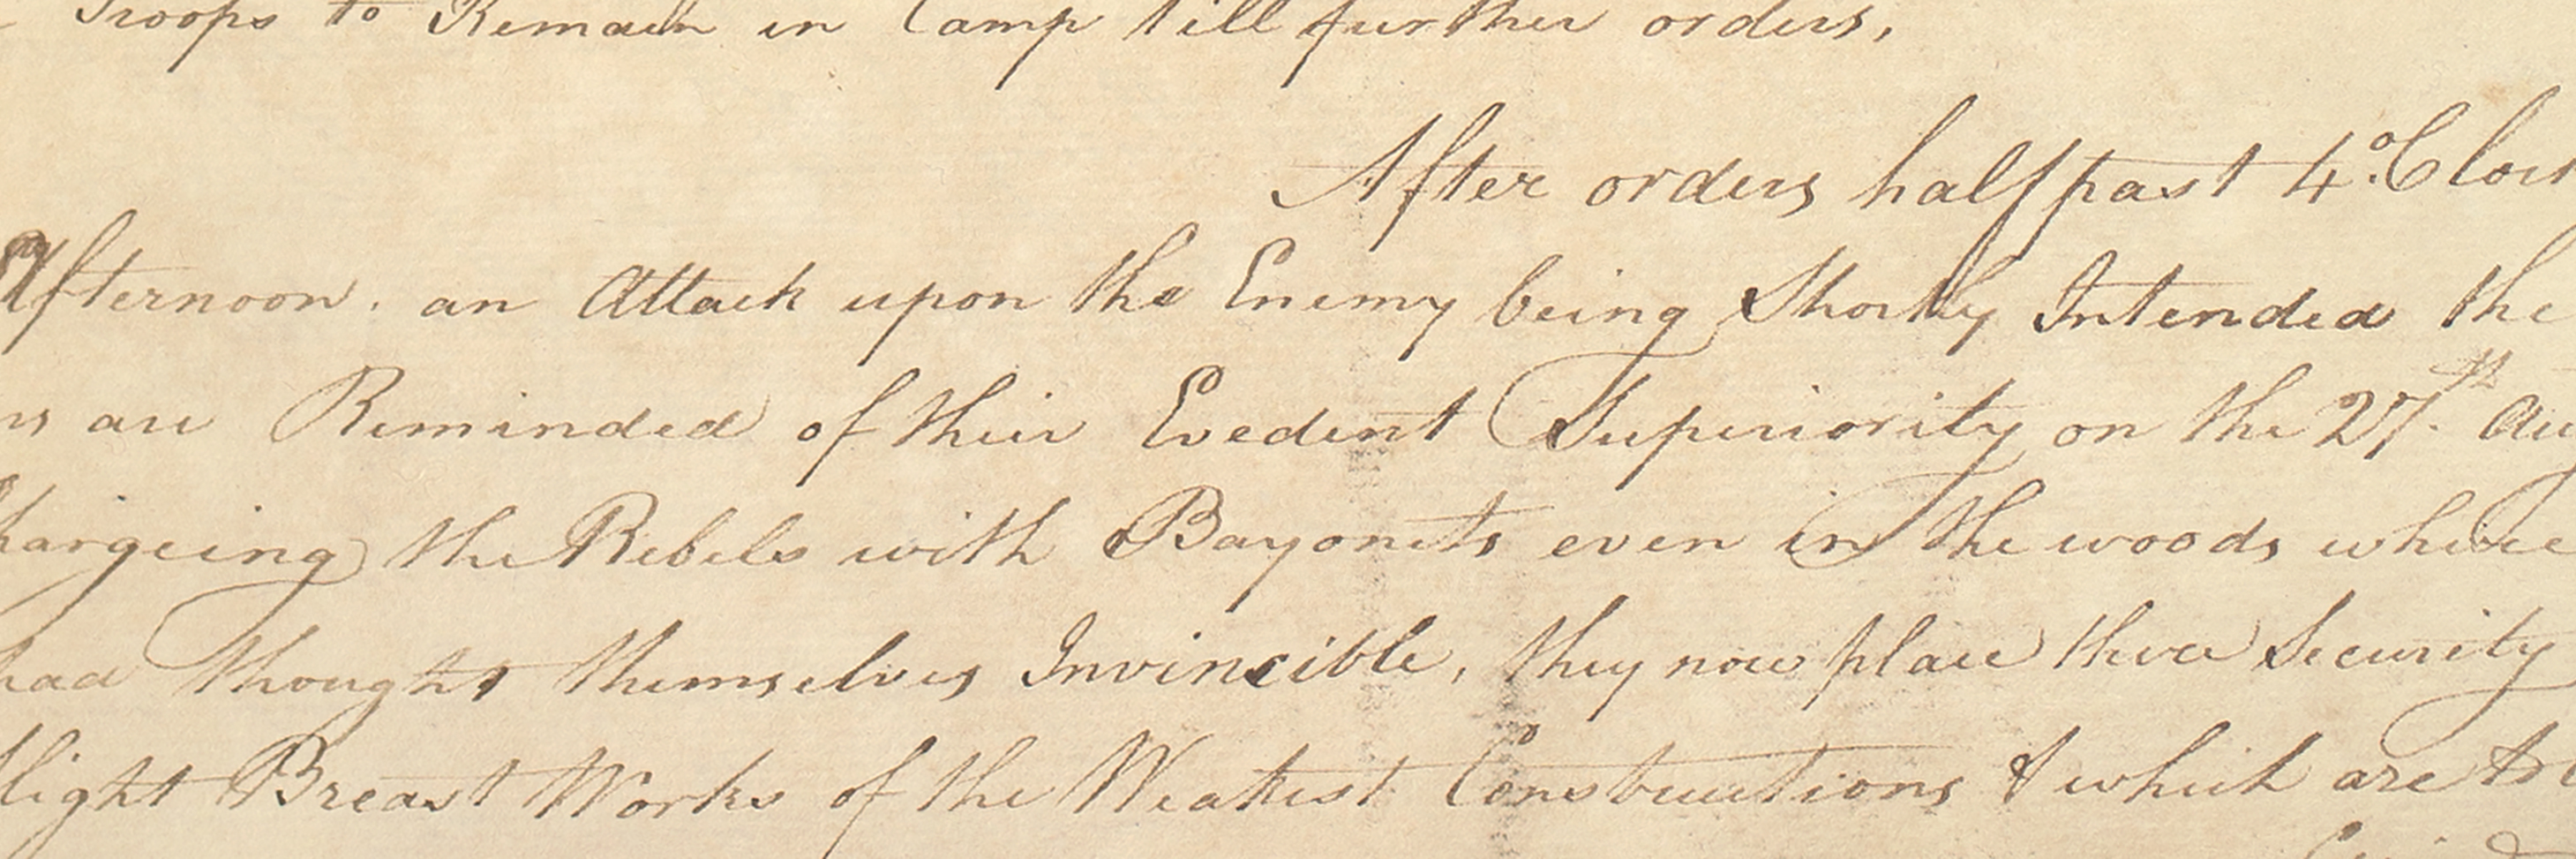 Troops to Remain in Camp till further orders,
After orders half past 4 oClock
Afternoon. an Attack upon the Enemy being Shortly Intended the
are Reminded of their Evedent Superiority on the 27th Au
hargeing the Rebels with Bayonets even in the woods where
had thought themselves Invincible, they now place their Security
Slight Breast Works of the Weakest Constructions & which are to